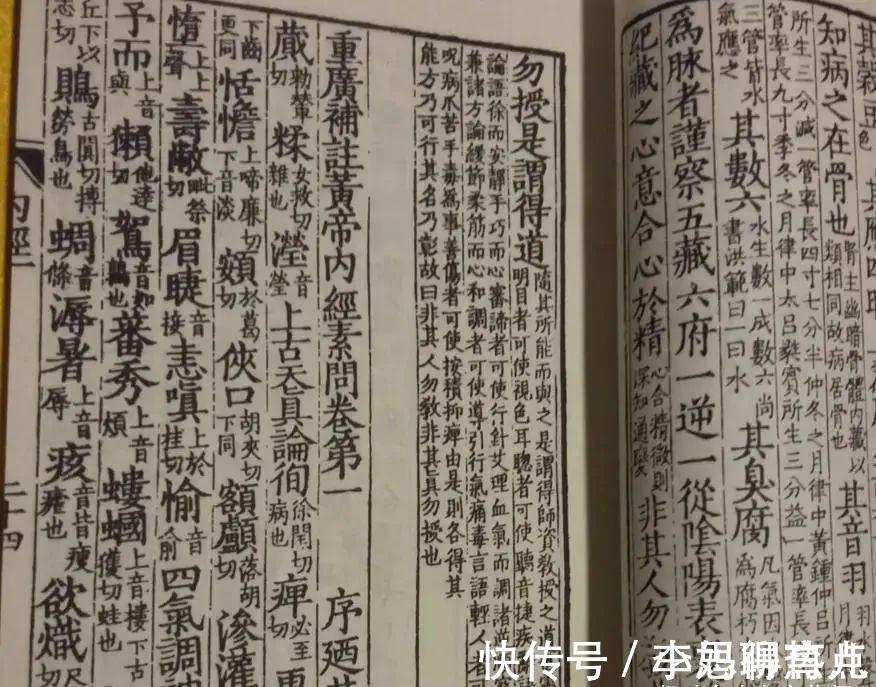 知病之在骨也 腎主幽暗骨體內藏以
類相同故病居骨也 其音羽
所生三分減一管率長四寸七分半仲冬之月律中黃鍾仲呂所
管率長九寸季冬之月律中太呂蕤賓所生三分益一管率長
三管皆水
氣應之 其數六 水生數一成數六尚
書洪範曰一曰水 其臭腐 凡氣因
為腐朽
為脉者謹察五藏六府一逆一從陰陽表
紀藏之心意合心於精 心合精微則
深知通變 非其人勿
勿授是謂得道 隨其所能而與之是謂得師資教授之道
明目者可使視色耳聰者可使聽音捷疾
論語徐而安靜手巧而心審諦者可使行針艾理血氣而調諸逆
兼諸方論緩節柔筋而心和調者可使導引行氣痛毒言語輕人者
呪病爪苦手毒為事善傷者可使按積抑痺由是則各得其
能方乃可行其名乃彰故曰非其人勿教非其真勿授也
重廣補註黃帝內經素問卷第一
序廼
蕆 勑輦切 糅 女救切雜也 瀅 音瑩 上古天真論徇 徐閏切病也 痺 必至切
下齝更同 恬憺 上啼廉切下音淡 頞 於葛切 俠口 胡夾切下同 額顱 落胡切 滲灌
墮 上上聲 壽敝 毗祭切 眉睫 音接 恚嗔 上於桂切 愉 音俞 四氣調神
予而 上音與 獺 他達切 鴽 音如鶉也 蕃秀 上音煩 螻蟈 上音樓下古獲切蛙也
丘下以志切 鵙 古闃切搏勞鳥也 蜩 音條 溽暑 上音辱 痎 音皆瘦瘧也 欲熾 尺切
內經
二十四
快传号 / 李思聊古典